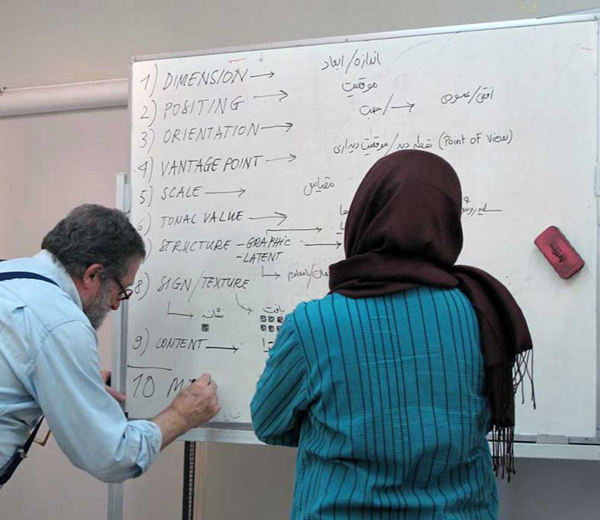 1) DIMENSION → اندازه/ابعاد
2) POSITING → موقعیت
3) ORIENTATION → جهت → افقی/عمودی
4) VANTAGE POINT → نقطه دید/موقعیت دیداری (Point of View)
5) SCALE → مقیاس
6) TONAL VALUE →
) STRUCTURE - GRAPHIC →
- LATENT
8) SIGN/TEXTURE
نشانه بافت
9) CONTENT →
10 M